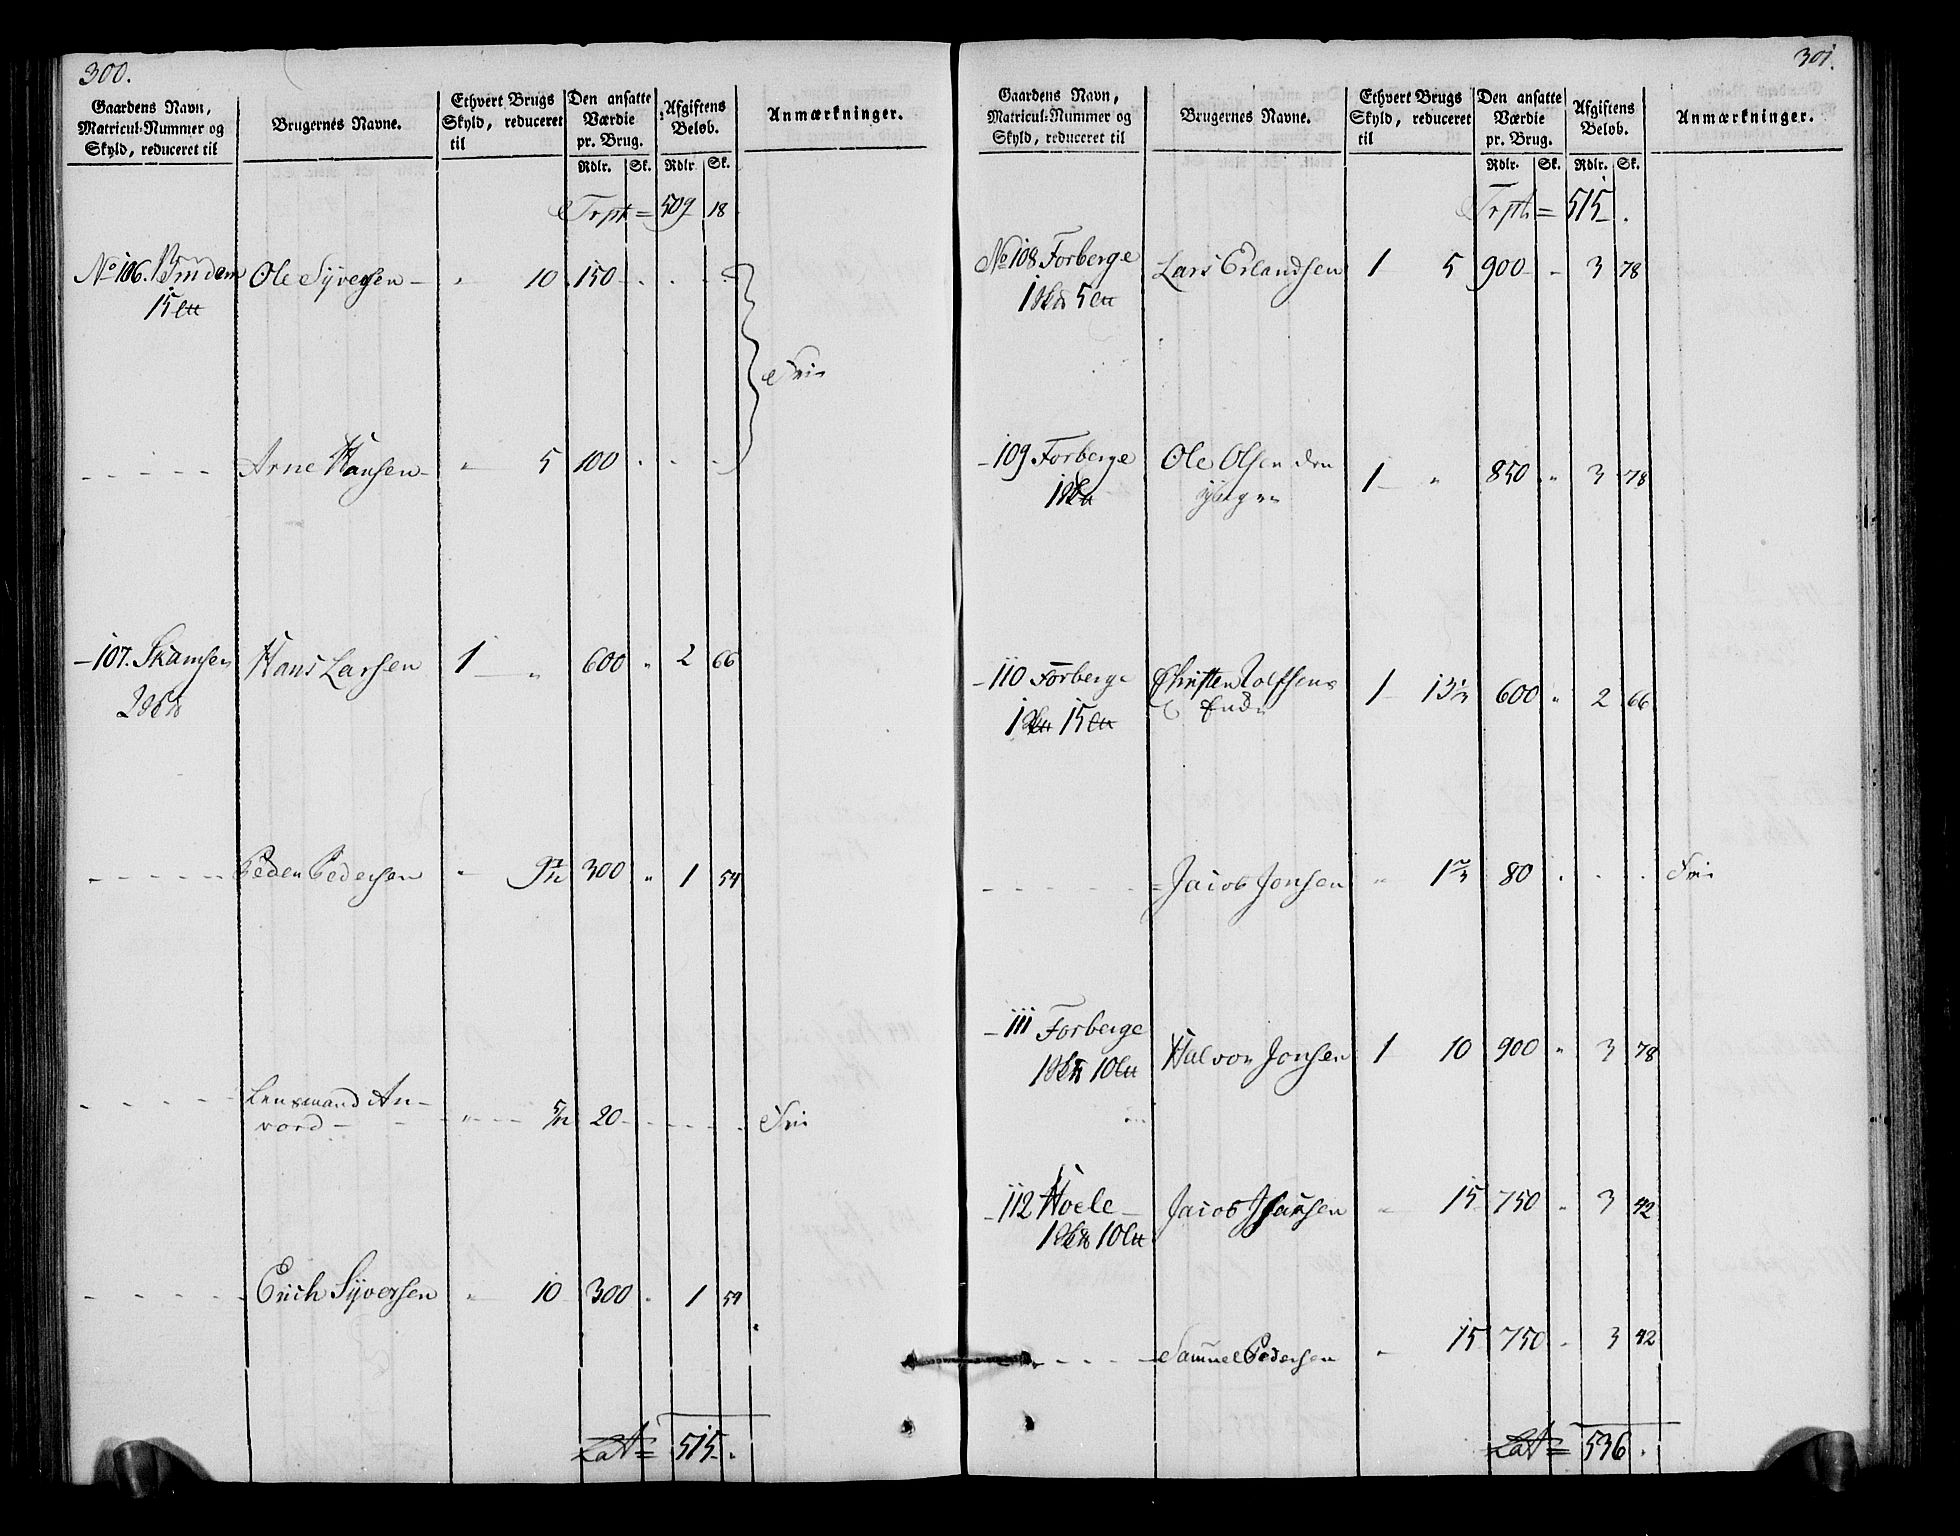 300.
Gaardens Navn, Matricul-Nummer og Skyld, reduceret til | Brugernes Navne. | Ethvert Brugs Skyld, reduceret til | Den ansatte Værdie pr. Brug. | Afgiftens Beløb. | Anmærkninger.
Rdlr. Sk. Rdlr. Sk.
Trpt = 509 18
No 106. Ole Syversen - " 10 150 - . . .
15
Fri
Arne Hansen - " 5 100 . - - -
- 107. Skamsen Hans Larsen 1 " 600 " 2 66
2
Peder Pedersen " 300 " 1 54
Lensmand An-
vord - " 5/12 20 Fri
Erich Syversen " 10 300 " 1 54
Lat = 515.
301.
Gaardens Navn, Matricul-Nummer og Skyld, reduceret til | Brugernes Navne. | Ethvert Brugs Skyld, reduceret til | Den ansatte Værdie pr. Brug. | Afgiftens Beløb. | Anmærkninger.
Rdlr. Sk. Rdlr. Sk.
Trpt = 515 .
No 108 Forberge Lars Erlandsen 1 5 900 - 3 78
1 5
- 109 Forberge Ole Olsen den 1 " 850 " 3 78
1 yngre
- 110 Forberge Christen 1 600 " 2 66
1 15 Enke
Jacob Jonsen " 80 . . . Fri
- 111 Forberge
1 10 Halvor Jonsen 1 10 900 " 3 78
- 112 Hoele Jacob " 15 750 " 3 42
1 10
Samuel Pedersen " 15 750 - 3 42
Lat = 536 .